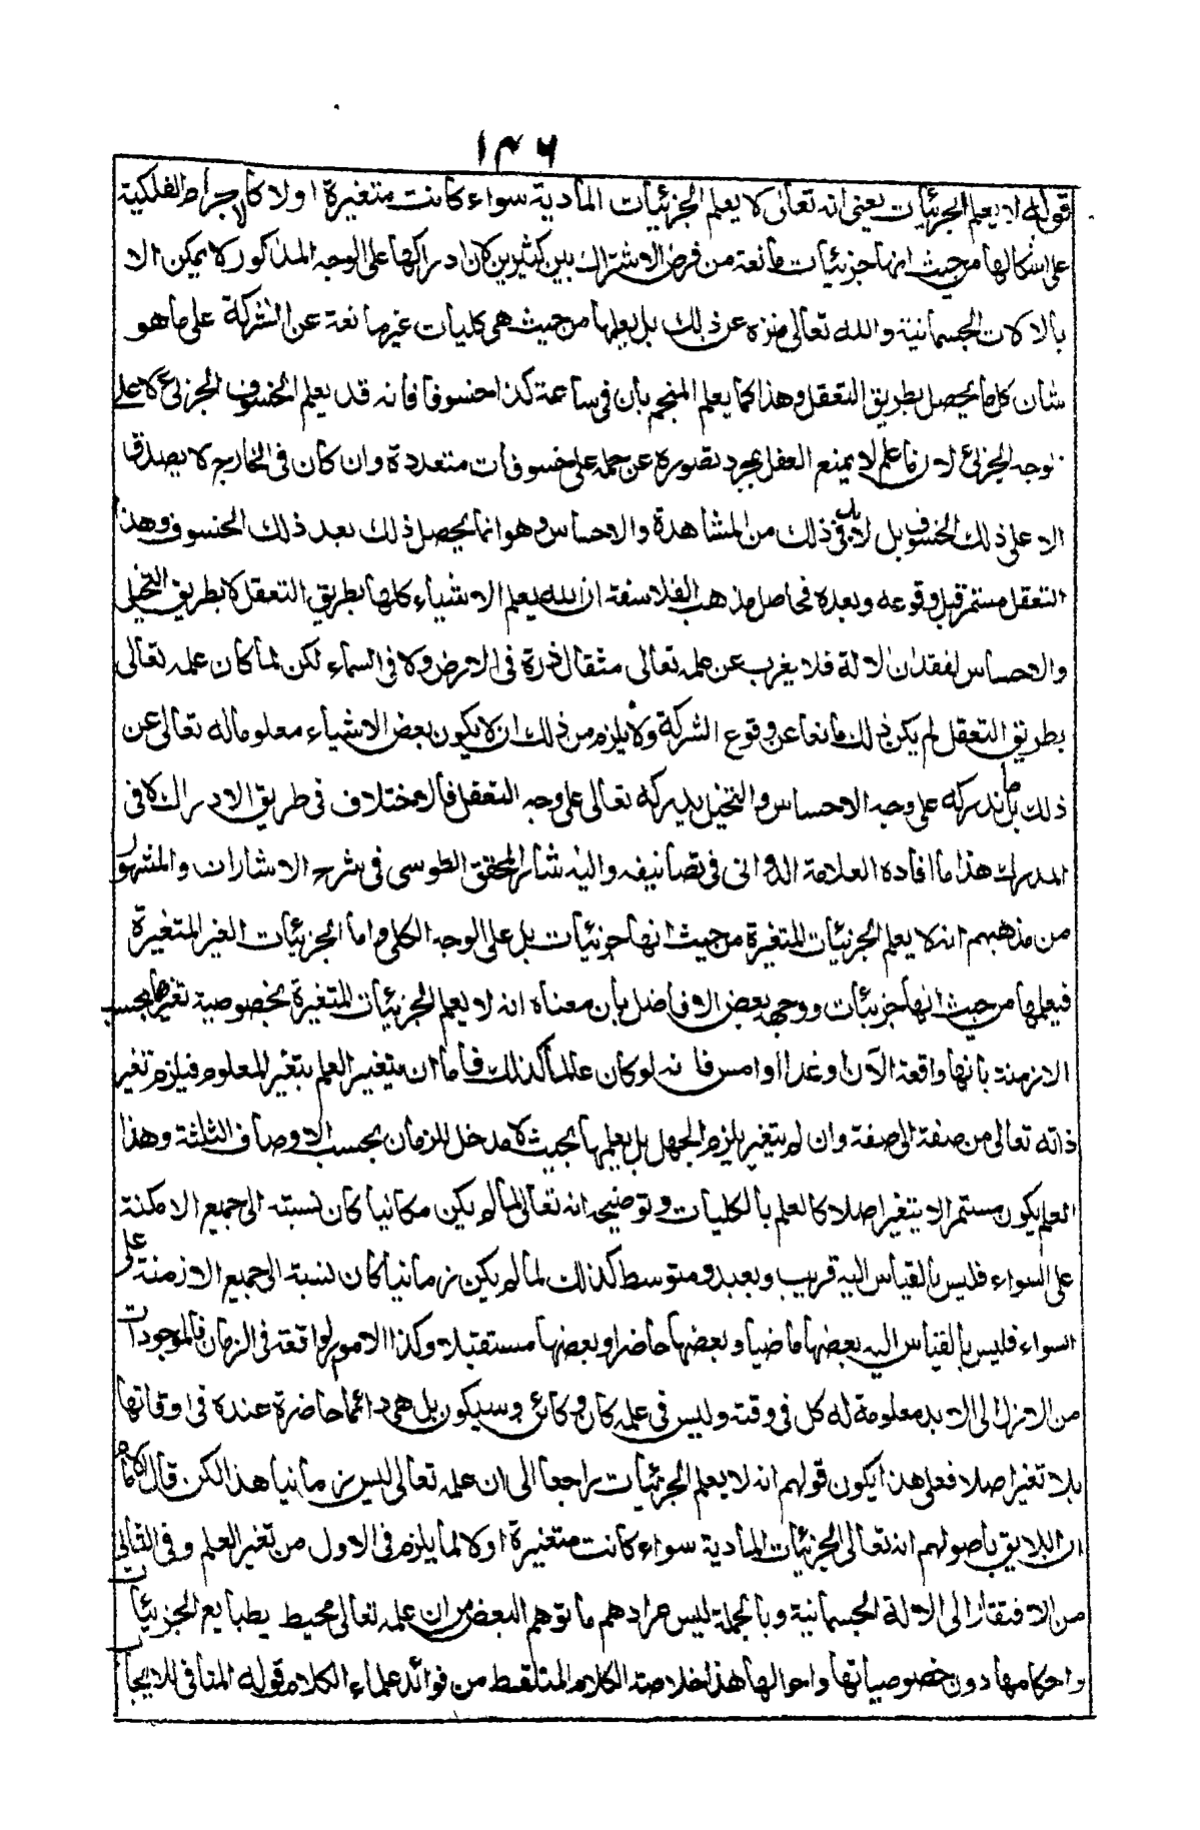 ١٤٦
قوله لا يعلم الجزئيات يعني انه تعالى لا يعلم الجزئيات المادية سواء كانت متغيرة اولا كالاجرام الفلكية
على اشكالها من حيث انها جزئيات مانعة من فرض الاشتراك بين كثيرين كان ادراكها على الوجه المذكور لا يمكن الا
بالالات الجسمانية والله تعالى منزه عن ذلك بل يعلمها من حيث هي كليات غير مانعة عن الشركة على ما هو
شان كل ما يحصل بطريق التعقل وهذا كما يعلم المنجم بان في ساعة كذا خسوفا فانه قد يعلم الخسوف الجزئي لا على
وجه الجزئي لان ما علم لا يمنع العقل بمجرد تصوره عن حمله على خسوفات متعددة وان كان في الخارج لا يصدق
الا على ذلك الخسوف بل لابد في ذلك من المشاهدة والاحساس وهو انما يحصل ذلك بعد ذلك الخسوف وهذا
التعقل مستمر قبل وقوعه وبعده فحاصل مذهب الفلاسفة ان الله يعلم الاشياء كلها بطريق التعقل لا بطريق التخيل
والاحساس لفقدان الالة فلا يغرب عن علمه تعالى مثقال ذرة في الارض ولا في السماء لكن لما كان علمه تعالى
بطريق التعقل لم يكن ذلك مانعا عن وقوع الشركة ولا يلزم من ذلك ان لا يكون بعض الاشياء معلوما له تعالى عن
ذلك بل ما ندركه على وجه الاحساس والتخيل يدركه تعالى على وجه التعقل فالاختلاف في طريق الادراك لا في
المدرك هذا ما افاده العلامة الدواني في تصانيفه واليه شار المحقق الطوسي في شرح الاشارات والمشهور
من مذهبهم انه لا يعلم الجزئيات المتغيرة من حيث انها جزئيات بل على الوجه الكلي واما الجزئيات الغير المتغيرة
فيعلمها من حيث انها جزئيات ووجهه بعض الافاضل بان معناه انه لا يعلم الجزئيات المتغيرة بخصوصية تغيرها بحسب
الازمنة بانها واقعة الآن او غدا او امس فانه لو كان عالما كذلك فاما ان يتغير العلم بتغير المعلوم فيلزم تغير
ذاته تعالى من صفة الى صفة وان لم يتغير يلزم الجهل بل يعلمها بحيث لا مدخل للزمان بحسب الاوصاف الثلثة وهذا
العلم يكون مستمرا لا يتغير اصلا كالعلم بالكليات وتوضيحه انه تعالى لما لم يكن مكانيا كان نسبته الى جميع الامكنة
على السواء فليس بالقياس اليه قريب وبعيد ومتوسط كذلك لما لم يكن زمانيا كان نسبة الى جميع الازمنة على
السواء فليس بالقياس اليه بعضها ماضيا وبعضها حاضرا وبعضها مستقبلا وكذا الامور الواقعة في الزمان فالموجودات
من الازل الى الابد معلومة له كل في وقته وليس في علمه كان وكائن وسيكون بل هي دائما حاضرة عنده في اوقاتها
بلا تغير اصلا فعلى هذا يكون قولهم انه لا يعلم الجزئيات راجعا الى ان علمه تعالى ليس زمانيا هذا لكن قال الامام
ان اللايق باصولهم انه تعالى الجزئيات المادية سواء كانت متغيرة اولا لما يلزم في الاول من تغير العلم وفي الثاني
من الافتقار الى الالة الجسمانية وبالجملة ليس مرادهم ما توهم البعض من ان علمه تعالى محيط بطبايع الجزئيات
واحكامها دون خصوصياتها واحوالها هذا خلاصة الكلام الملتقط من فوائد علماء الكلام قوله المنافي للايجاب